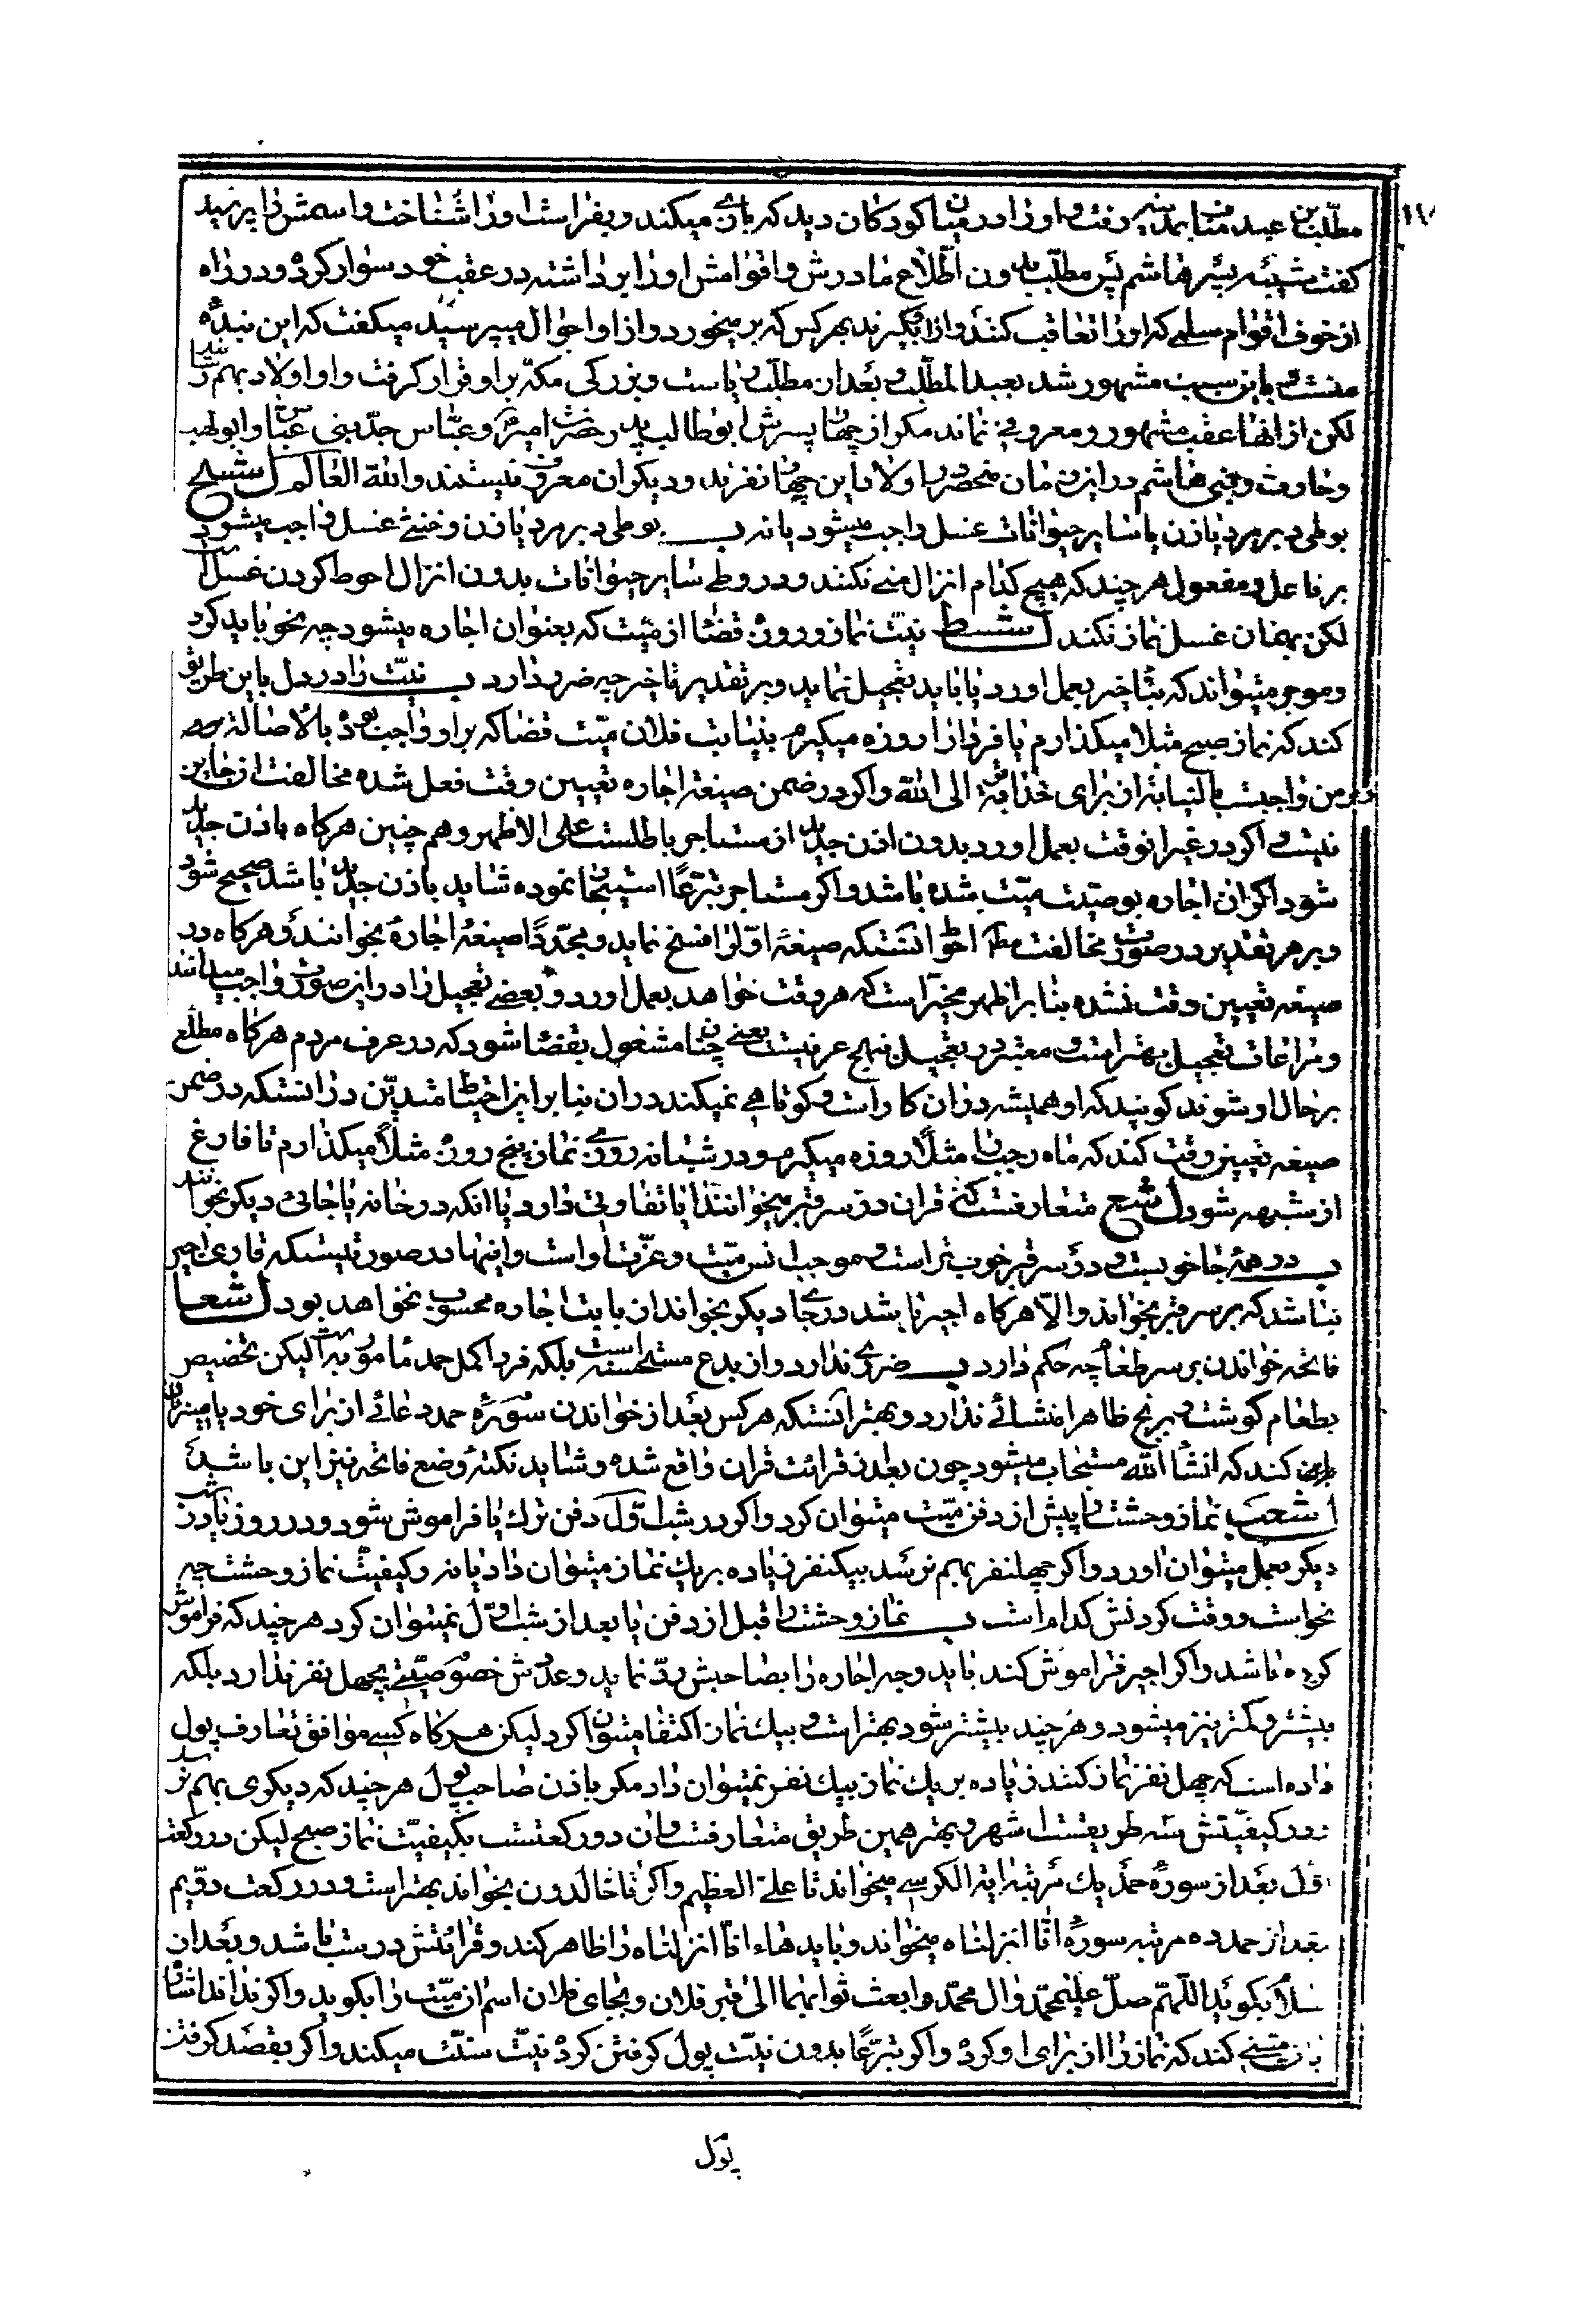 مطلب بن عبد مناف بمدینه رفت و او را در میان کودکان دید که بازی میکند و بفراست او را شناخت و اسمش را پرسید
گفت شیبه پسر هاشم پس مطلب بدون اطلاع مادرش و اقوامش او را برداشته در عقب خود سوار کرد و در راه
از خوف اقوام سلمی که او را تعاقب کنند و از او بگیرند بهر کس که بر میخورد و از او احوال میپرسید میگفت که این بنده
منست و باین سبب مشهور شد بعبد المطلب و بعد از مطلب ریاست و بزرگی مکه بر او قرار گرفت و او اولاد بهم رسانید
لکن از آنها عقب مشهور و معروفی نماند مگر از چهار پسرش ابوطالب پدر حضرت امیر و عباس جد بنی عباس و ابولهب
و حارث و بنی هاشم در این زمان منحصر در اولاد این چهار نفرند و دیگران معروف نیستند و الله العالم اشیح
بوطی دبر مرد یا زن یا سایر حیوانات غسل واجب میشود یا نه ب بوطی دبر مرد یا زن و خنثی غسل واجب میشود
بر فاعل و مفعول هر چند که هیچ کدام انزال منی نکنند و در وطی سایر حیوانات بدون انزال احوط کردن غسل است
لکن بهمان غسل نماز نکند اشط نیت نماز و روزه قضا از میت که بعنوان اجاره میشود چه نحو باید کرد
و موجر میتواند که بتاخیر بعمل اورد یا باید تعجیل نماید و بر تقدیر تاخیر چه ضرر دارد ب نیت را در دل باین طریق
کند که نماز صبح مثلا میگذارم یا فردا را روزه میگیرم بنیابت فلان میت قضا که بر او واجب بوده بالاصاله و
بر من واجبست بالنیابه از برای خدا قربة الی الله و اگر در ضمن صیغه اجاره تعیین وقت فعل شده مخالفت از جایز
نیست و اگر در غیر انوقت بعمل اورد بدون اذن جدید از مستاجر باطلست علی الاظهر و هم چنین هرگاه باذن جدید
شود اگر ان اجاره بوصیت میت شده باشد و اگر مستاجر تبرعًا استیجار نموده شاید باذن جدید باشد صحیح شود
و بر هر تقدیر در صورت مخالفت احوط انستکه صیغه اول را فسخ نماید و مجددًا صیغه اجاره بخوانند و هرگاه در
صیغه تعیین وقت نشده بنابر اظهر مخیر است که هر وقت خواهد بعمل اورد و بعضی تعجیل را در این صورت واجب میدانند
و مراعات تعجیل بهتر است و معتبر در تعجیل نهج عرفیست یعنی چنان مشغول بقضا شود که در عرف مردم هرگاه مطلع
بر حال او شوند گویند که او همیشه در ان کار است و کوتاهی نمیکند در ان بنا بر این احتیاط شدید در انستکه در ضمن
صیغه تعیین وقت کند که ماه رجب را مثلًا روزه میگیرم و در شبانه روزی نماز پنج روزه مثلًا میگذارم تا فارغ
از شبهه شود اشع متعارفست که قران در سر قبر میخوانند ایا تفاوتی دارد یا انکه در خانه یا جائی دیگر بخوانند
ب در همه جا خوبست و در سر قبر خوب تر است و موجب انس میت و عزت او است و اینها در صورتیستکه قاری اجیر
نباشد که بر سر قبر بخواند و الا هرگاه اجیر باشد در جای دیگر بخواند از بابت اجاره محسوب نخواهد بود اشعا
فاتحه خواندن بر سر طعام چه حکم دارد ب ضرری ندارد و از بدع مستحسنه است بلکه فرد اکمل حمد مامور به است لیکن تخصیص
بطعام گوشت و برنج ظاهرا منشائی ندارد و بهتر انستکه هر کس بعد از خواندن سوره حمد دعائی از برای خود یا میزبان
کند که انشاء الله مستجاب میشود چون بعد از قرائت قران واقع شده و شاید نکته وضع فاتحه نیز این باشد
اشعب نماز وحشت را پیش از دفن میت میتوان کرد و اگر در شب اول دفن ترک یا فراموش شود در روز یا در شب
دیگر بعمل میتوان اورد و اگر چهل نفر بهم نرسد بیکنفر زیاده بر یك نماز میتوان داد یا نه و کیفیت نماز وحشت چه
نحو است و وقت کردنش کدام است ب نماز وحشت را قبل از دفن یا بعد از شب اول نمیتوان کرد هر چند که فراموش
کرده باشد و اگر اجیر فراموش کند باید وجه اجاره را بصاحبش رد نماید و عددش خصوصیتی بچهل نفر ندارد بلکه
بیشتر و کمتر نیز میشود و هر چند بیشتر شود بهتر است و بیك نماز اکتفا میتوان کرد لیکن هرگاه کسی موافق تعارف پول
داده است که چهل نفر نماز کنند زیاده بر یك نماز بیك نفر نمیتوان داد مگر باذن صاحب پول هر چند که دیگری بهم نرسد
و در کیفیتش سه طریقست اشهر و بهتر همین طریق متعارفست و ان دو رکعتست بکیفیت نماز صبح لیکن در رکعت
اول بعد از سوره حمد یك مرتبه ایة الکرسی میخواند تا علی العظیم و اگر تا خالدون بخواند بهتر است و در رکعت دویم
بعد از حمد ده مرتبه سوره انا انزلناه میخواند و باید هاء انا انزلناه را ظاهر کند و قرائتش درست باشد و بعد از
سلام بگوید اللهم صل علی محمد و ال محمد و ابعث ثوابهما الی قبر فلان و بجای فلان اسم ان میت را بگوید و اگر نداند اشاره
بان میتی کند که نماز را از برای او کرده و اگر تبرعًا بدون نیت پول گرفتن کرده نیت سنت میکند و اگر بقصد گرفتن
پول